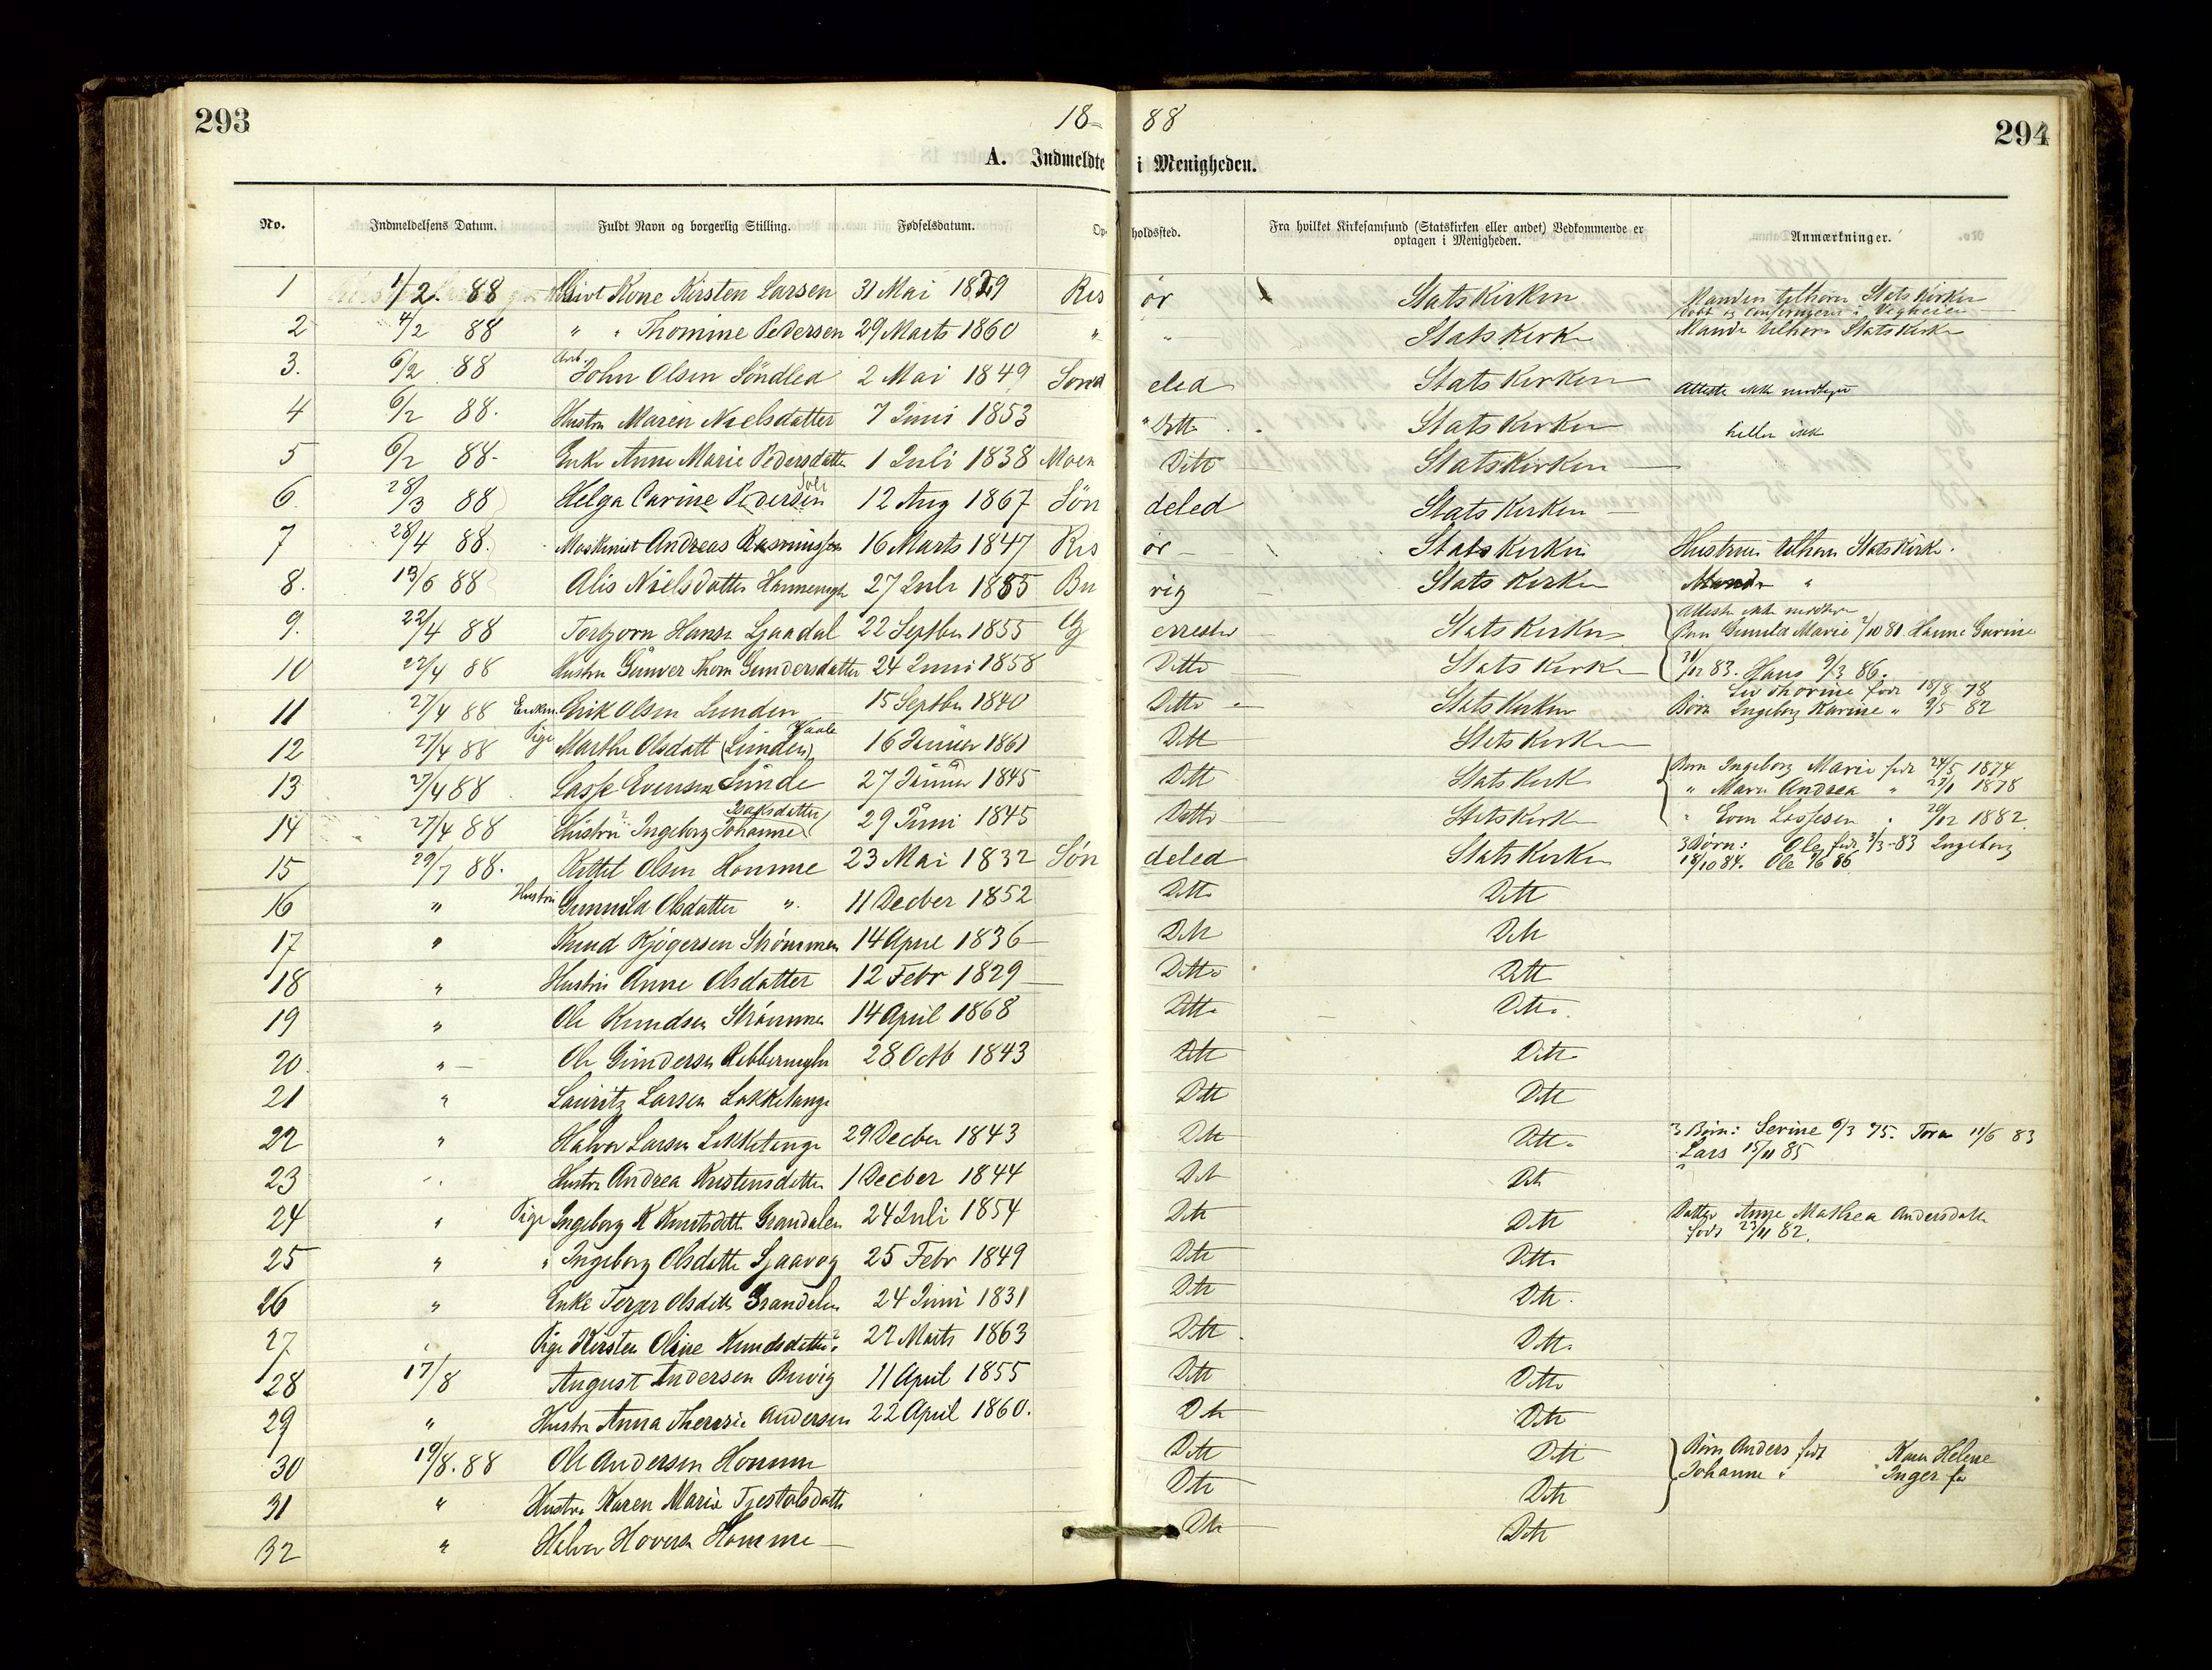 293
18-88
294
A. Indmeldte i Menigheden.
No. Indmeldelsens Datum. Fuldt Navn og borgerlig Stilling. Fødselsdatum. Opholdssted. Fra hvilket Kirkesamfund (Statskirken eller andet) Vedkommende er optagen i Menigheden. Anmærkninger.
1 1/2. 88 Givt Kone Kirsten Larsen 31 Mai 1829 Risør Statskirken Manden tilhører Statskirken
2 4/2 88 " " Thomine Pedersen 29 Marts 1860 " " Statskirke Mande tilhører Statskirk
3. 6/2 88 Arb. John Olsen Söndled 2 Mai 1849 Søndeled Statskirken Atteste ikke modtaget
4 6/2 88. Hustru Maren Nielsdatter 7 Juni 1853 " Ditto Statskirken heller ikke
5 6/2 88- Enke Anne Marie Pedersdatter 1 Juli 1838 Moen Ditto Statskirken
6. 28/3 88 Helga Carine Pedersen 12 Aug 1867 Søndeled Statskirken
7 28/4 88. Maskinist Andreas Rasmussen 16 Marts 1847 Risør Statskirken Hustruen tilhører Statskirke.
8. 13/6 88 Alis Nielsdatter 27 Juli 1855 Buvig Statskirken Manden "
9. 22/4 88 Torbjorn Hansen Ljaadal 22 Septber 1855 Gjerrestad Statskirken Atteste ikke modtaget Børn Gunild Marie 2/10 81 Hanne Gurine
10 22/4 88 Hustru Gunver Thom Gundersdatter 24 Juni 1858 Ditto Statskirke 31/12 83. Hans 9/3 86.
11 27/4 88 Enkem. Erik Olsen Lunden 15 Septber 1840 Ditto Statskirken Børn Liv Thorine født 18/8 78 Ingeborg Karine " 9/5 82
12 27/4 88 Pige Marthe Olsdatt (Lunden) Vaale 16 Januar 1861 Ditt Statskirken
13 27/4 88 Lasse Evensen Lunde 27 Januar 1845 Ditt Statskirk Børn Ingeborg Marie født 24/5 1874 " Maren Andrea " 27/1 1878
14 27/4 88 Hustru Ingeborg Johanne Isaksdatter 29 Juni 1845 Ditto Statskirk " Even Lassesen " 20/12 1882
15 29/7 88. Kittil Olsen Homme 23 Mai 1832 Søndeled Statskirken 3 Børn: Ole født 3/3-83 Ingeborg 18/10 84. Ole 9/6 86
16 " Hustru Gunnild Olsdatter " 11 Decber 1852 Ditto Ditt
17 " Knud Kjögersen Strømmen 14 April 1836 Ditt Ditt
18 " Hustru Anne Olsdatter 12 Febr 1829 Ditto Ditt
19 " Ole Knudsen Strømmen 14 April 1868 Ditto Ditto
20 " Ole Gundersen 28 Octb 1843 Ditt Ditto
21 " Lauritz Larsen Lakketange Ditt Ditt
22 " Halvor Larsen Lakketange 29 Decber 1843 Ditt Ditto 3 Børn: Serine 9/3 75. Tora 11/6 83 Lars 15/11 85
23 " Hustru Andrea Kristensdatter 1 Decber 1844 Ditt Ditt
24 " Pige Ingeborg K Knutsdatt Grandalen 24 Juli 1854 Ditt Ditt Datter Anne Mathea Andersdatter født 23/11 82.
25 " " Ingeborg Olsdatter Ljaavog 25 Febr 1849 Ditt Ditto
26 " Enke Terjer Olsdatter Grandalen 24 Juni 1831 Ditt Ditt
27 " Pige Kirsten Oline Knudsdatter 22 Marts 1863 Ditt Ditto
28 17/8 August Andersen Buvig 11 April 1855 Ditt Ditto
29 " Hustru Anna Theresie Andersen 22 April 1860. Ditt Ditt
30 19/8.88 Ole Andersen Homme Ditt Ditt Børn Anders født Karen Helene
31 " Hustru Karen Marie Tjestolsdatter Ditt Ditt Johanne " Inger fø
32 " Halvor Hovers Homme Ditt Ditt